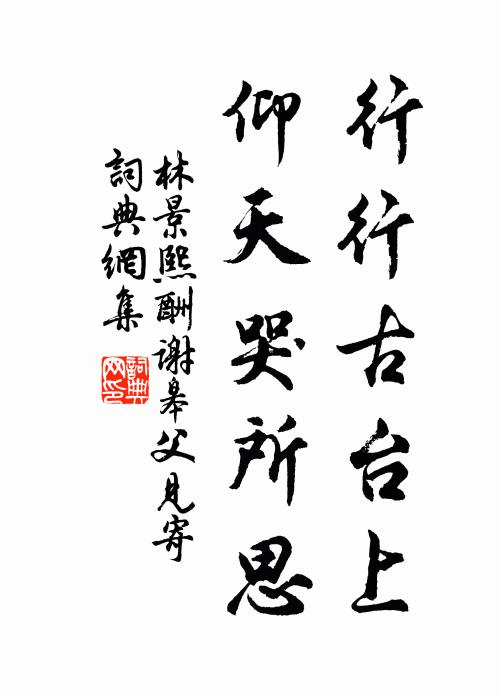 行行古台上
仰天哭所思
林景熙酬謝皋父見寄
詞典網集
詞典
网印